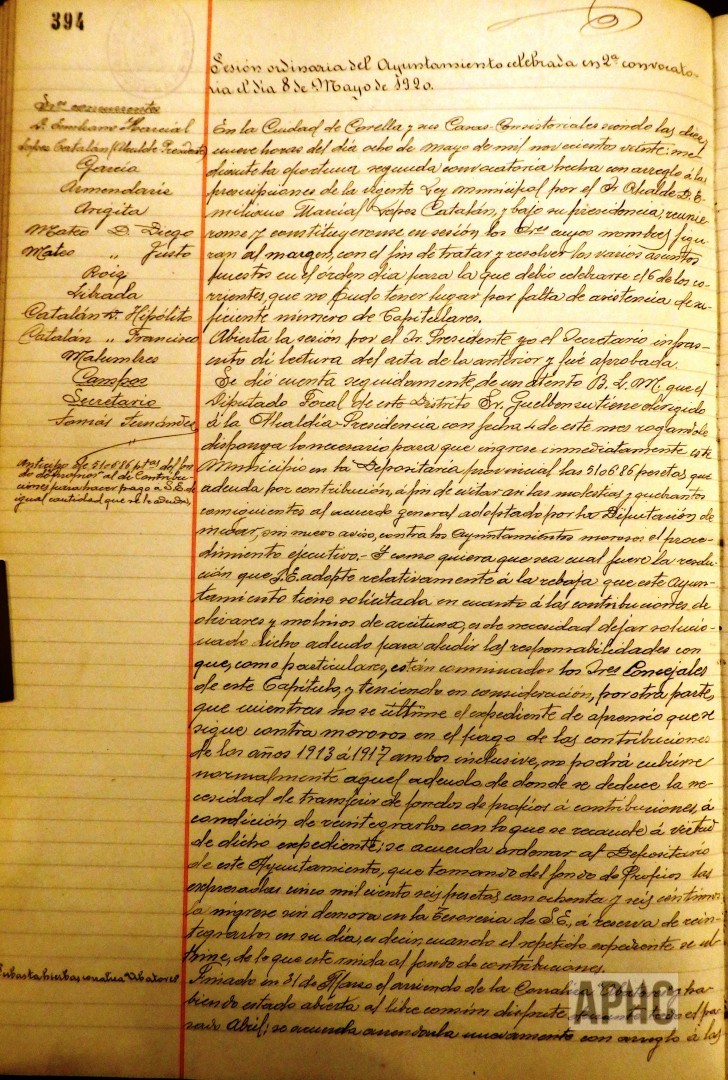 394
Sesión ordinaria del Ayuntamiento celebrada en 2ª convocato-
ria el día 8 de Mayo de 1920.
Sres. concurrentes
D. Emiliano Marcial
López Catalán (Alcalde Presidente)
García
Armendariz
Arigita
Mateo D. Diego
Mateo " Justo
Roig
Librada
Catalán D. Hipólito
Catalán " Francisco
Malumbres
Campos
Secretario
Tomás Fernández
Anticipo de 5106'86 ptas. del fon-
do de Propios al de Contribu-
ciones para hacer pago a S.E. de
igual cantidad que se le adeuda
En la Ciudad de Corella y sus Casas-Consistoriales siendo las diez
nueve horas del día ocho de mayo de mil novecientos veinte: me-
diante la oportuna segunda convocatoria hecha con arreglo á las
prescripciones de la vigente Ley municipal por el Sr. Alcalde D. E-
miliano Marcial López Catalán, y bajo su presidencia; reunie-
ronse y constituyeronse en sesión los Sres. cuyos nombres figu-
ran al margen, con el fin de tratar y resolver los varios asuntos
puestos en el órden día para la que debió celebrarse el 6 de los co-
rrientes, que no pudo tener lugar por falta de asistencia de su-
ficiente número de Capitulares.
Abierta la sesión por el Sr. Presidente yo el Secretario infras-
crito dí lectura del acta de la anterior y fué aprobada.
Se dió cuenta seguidamente, de un atento B. L. M. que el
Diputado Foral de este Distrito Sr. Guelbenzu tiene dirigido
á la Alcaldía-Presidencia con fecha 4 de este mes rogandole
disponga lo necesario para que ingrese inmediatamente este
Municipio en la Depositaría provincial las 5106'86 pesetas que
adeuda por contribución, á fin de evitar las molestias y quebrantos
consiguientes al acuerdo general adoptado por la Diputación de
incoar, sin nuevo aviso, contra los Ayuntamientos morosos el proce-
dimiento ejecutivo.- Y como quiera que sea cual fuere la resolu-
ción que S.E. adopte relativamente á la rebaja que este Ayun-
tamiento tiene solicitada en cuanto á las contribuciones de
olivares y molinos de aceituna, es de necesidad dejar solucio-
nado dicho adeudo para eludir las responsabilidades con
que, como particulares, están conminados los Sres. Concejales
de este Capítulo, y teniendo en consideración, por otra parte,
que mientras no se ultime el expediente de apremio que se
sigue contra morosos en el pago de las contribuciones
de los años 1913 á 1917 ambos inclusive, no podrá cubrirse
normalmente aquel adeudo de donde se deduce la ne-
cesidad de transferir de fondos de propios á contribuciones, á
condición de reintegrarlos con lo que se recaude á virtud
de dicho expediente; se acuerda ordenar al Depositario
de este Ayuntamiento, que tomando del fondo de Propios las
expresadas cinco mil ciento seis pesetas con ochenta y seis céntimos
la ingrese sin demora en la Tesorería de S.E., á reserva de rein-
tegrarlos en su día, es decir, cuando el repetido expediente se ul-
time, de lo que este rinda al fondo de contribuciones.
Subasta hierbas corraliza
Finado en 31 de Marzo el arriendo de la Corraliza
biendo estado abierta al libre común disfrute, el pa-
sado Abril; se acuerda arrendarla nuevamente con arreglo á las
APHC